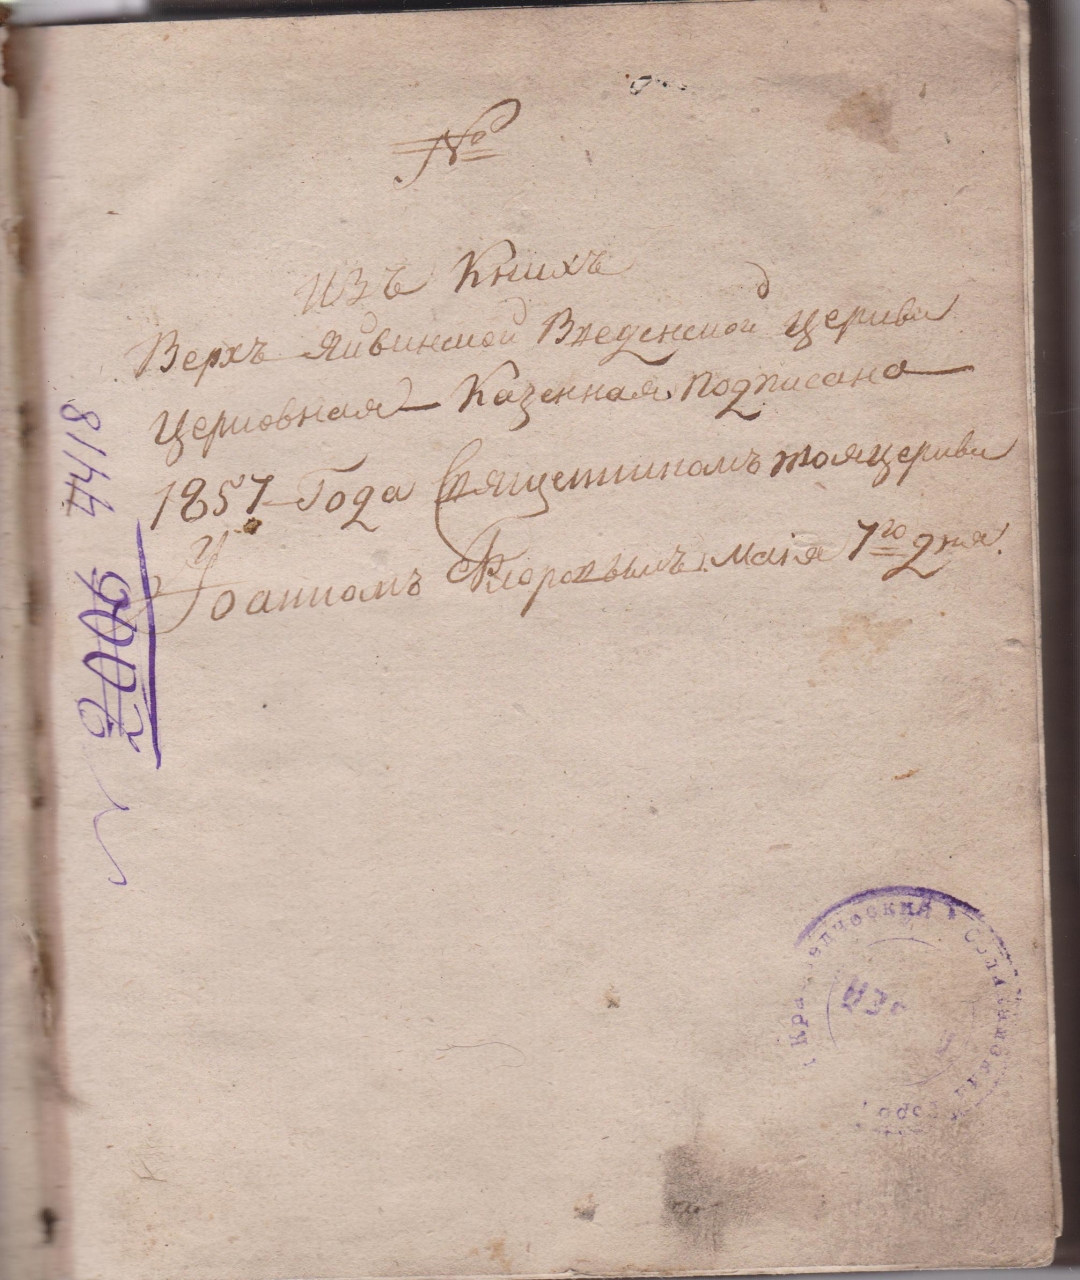 №
Изъ Книхъ
Верхъ Яйвинской Введенской Церкви
Церковная Казенная подписана
1857 Года Священникомъ тоя церкви
Іоанномъ Флоровымъ. Маія 7го дня.
44/18
9002
Краеведческий
МУЗЕЙ